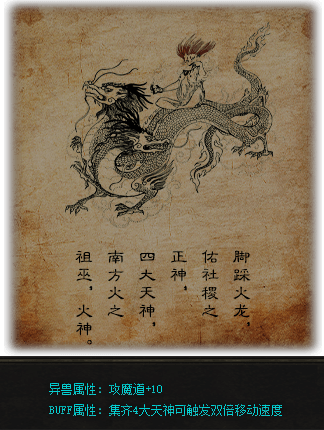 脚踩火龙，
佑社稷之
正神，
四大天神，
南方火之
祖巫，火神。
异兽属性：攻魔道+10
BUFF属性：集齐4大天神可触发双倍移动速度